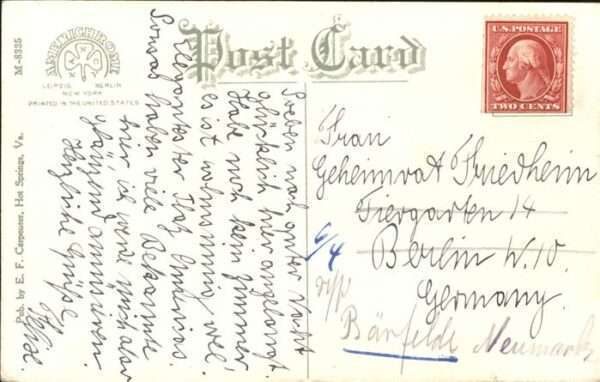 M-8335
AMERICHROME
LEIPZIG BERLIN
NEW YORK
PRINTED IN THE UNITED STATES
Post Card
U.S. POSTAGE
TWO CENTS
Pub. by E. F. Carpenter, Hot Springs, Va.
Soeben nach guter Nacht
glücklich hier angelangt.
Habe noch kein Zimmer
es ist wahnsinnig voll.
Elegantester Platz Amerikas.
Sowas haben viele Bekannte
hier, ich werde mich also
glänzend amüsieren.
Herzliche Grüße
Frau
Geheimrat Friedheim
Tiergarten 14
Berlin W. 10.
Germany.
6/4
Bärfelde Neumark